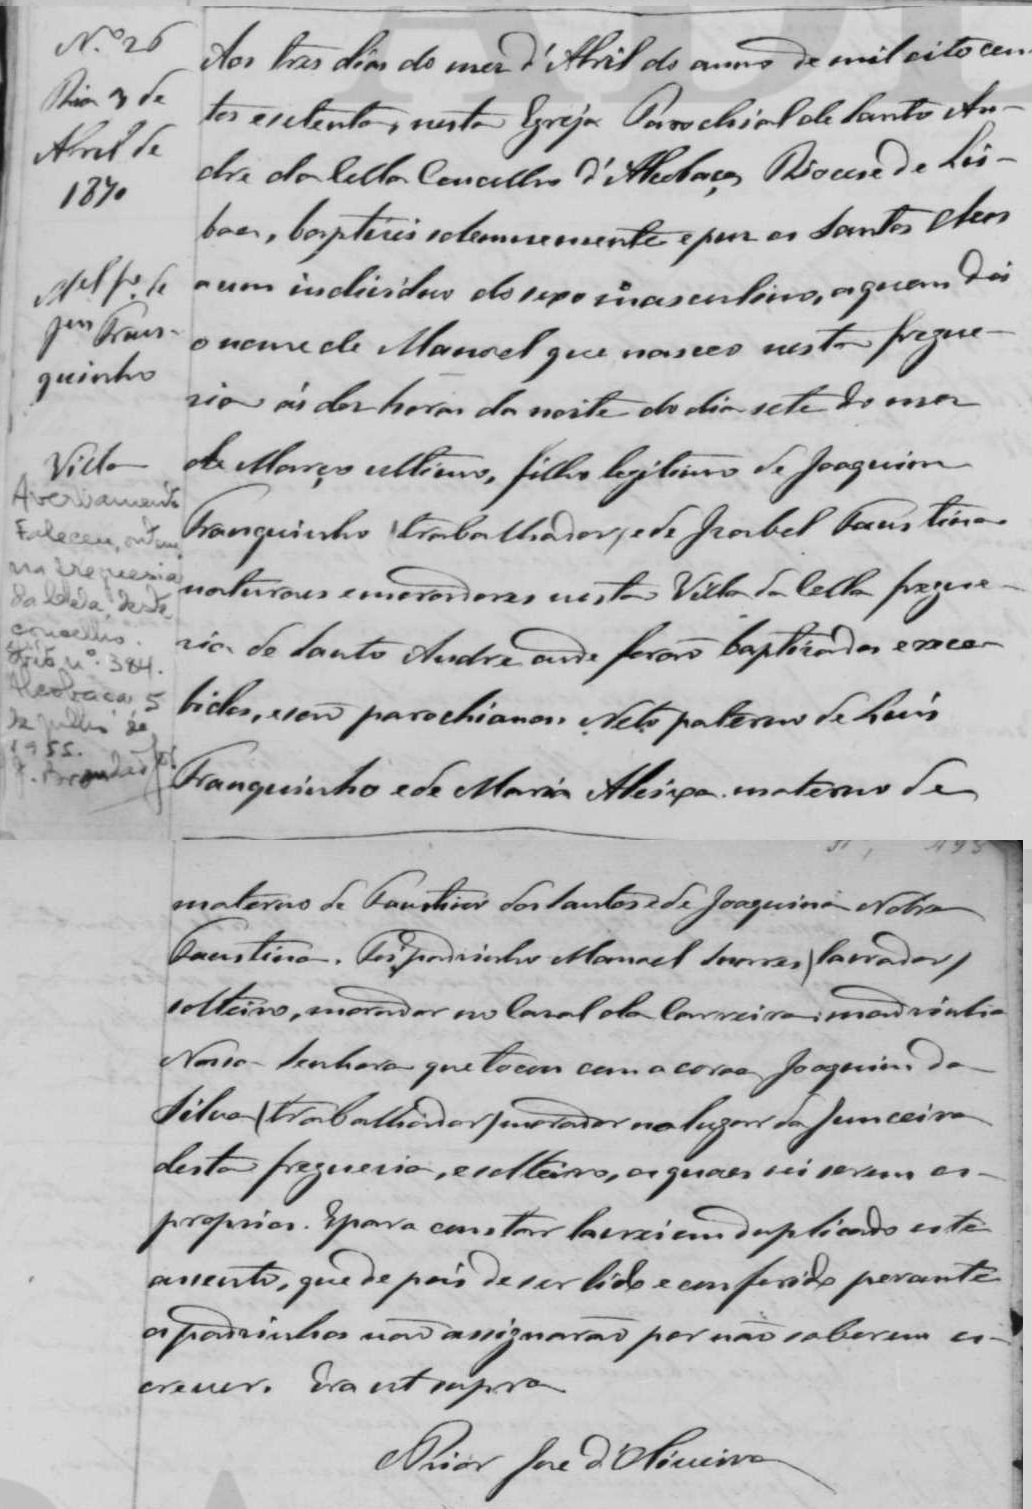 N.º 26
Dia 3 de
Abril de
1870
Mel fo. de
Jm Fran-
quinho
Villa
Averbamento
Faleceu, ontem
na freguesia
da Cela, deste
concelho.
nº. 384.
Alcobaça, 5
de julho de
1955.
Aos tres dias do mez d'Abril do anno de mil oito cen
tos e setenta, nesta Egreja Parochial de Santo An-
dre da Cella Concelho d'Alcobaça, Diocese de Lis-
boa, baptisei solemnemente e puz os Santos Oleos
a um individuo do sexo masculino, a quem dei
o nome de Manoel que nasceo nesta fregue-
zia ás dez horas da noite do dia sete do mez
de Março ultimo, filho legitimo de Joaquim
Franquinho (trabalhador) e de Izabel Faustina
naturaes e moradores nesta Villa da Cella fregue-
zia de Santo Andre onde forão baptizados e rece-
bidos, e são parochianos. Neto paterno de Luis
Franquinho e de Maria Aleixa. materno de
materno de Faustino dos Santos e de Joaquina
Faustina. Foi padrinho Manoel Soares (lavrador)
solteiro, morador no Casal da Carreira, madrinha
Nossa Senhora que tocou com a coroa Joaquim da
Silva (trabalhador) morador no lugar da Junceira
desta freguezia, e solteiro, os quaes sei serem os
proprios. E para constar lavrei em duplicado este
assento, que depois de ser lido e conferido perante
os padrinhos não assignarão por não saberem es-
crever. Era ut supra
O Prior Jose d'Oliveira